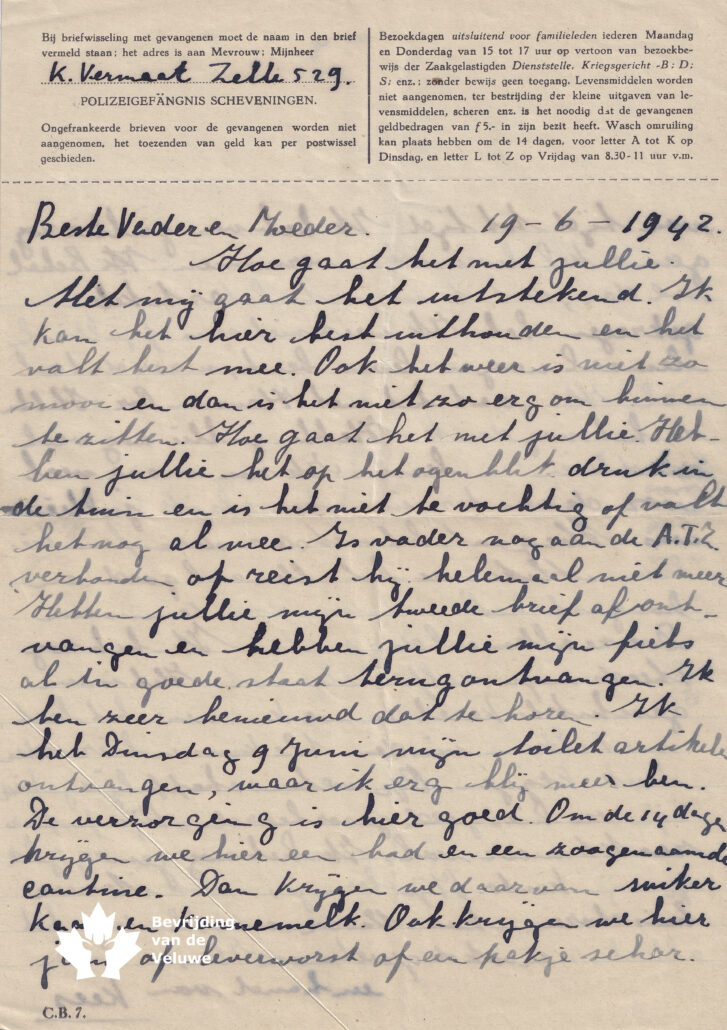 Bij briefwisseling met gevangenen moet de naam in den brief
vermeld staan; het adres is aan Mevrouw; Mijnheer
K. Vermaat Zelle 529.
POLIZEIGEFÄNGNIS SCHEVENINGEN.
Ongefrankeerde brieven voor de gevangenen worden niet
aangenomen, het toezenden van geld kan per postwissel
geschieden.
Bezoekdagen uitsluitend voor familieleden iederen Maandag
en Donderdag van 15 tot 17 uur op vertoon van bezoekbe-
wijs der Zaakgelastigden Dienststelle. Kriegsgericht -B; D;
S; enz.; zonder bewijs geen toegang. Levensmiddelen worden
niet aangenomen, ter bestrijding der kleine uitgaven van le-
vensmiddelen, scheren enz. is het noodig dat de gevangenen
geldbedragen van f 5.- in zijn bezit heeft. Wasch omruiling
kan plaats hebben om de 14 dagen, voor letter A tot K op
Dinsdag, en letter L tot Z op Vrijdag van 8.30-11 uur v.m.
Beste Vader en Moeder. 19-6-1942.
Hoe gaat het met jullie.
Met mij gaat het uitstekend. Ik
kan het hier best uithouden en het
valt best mee. Ook het weer is niet zo
mooi en dan is het niet zo erg om binnen
te zitten. Hoe gaat het met jullie. Heb-
ben jullie het op het ogenblik druk in
de tuin en is het niet te vochtig of valt
het nog al mee. Is vader nog aan de A.T.Z.
verbonden of reist hij helemaal niet meer
Hebben jullie mijn tweede brief al ont-
vangen en hebben jullie mijn fiets
al in goede staat terug ontvangen. Ik
ben zeer benieuwd dat te horen. Ik
heb Dinsdag 9 Juni mijn toilet artikelen
ontvangen, waar ik erg blij mee ben.
De verzorging is hier goed. Om de 14 dagen
krijgen we hier een bad en een zoogenaamde
cantine. Dan krijgen we daar van suiker
en karnemelk. Ook krijgen we hier
op leverworst of een pakje
Bevrijding
van de
Veluwe
C.B.7.